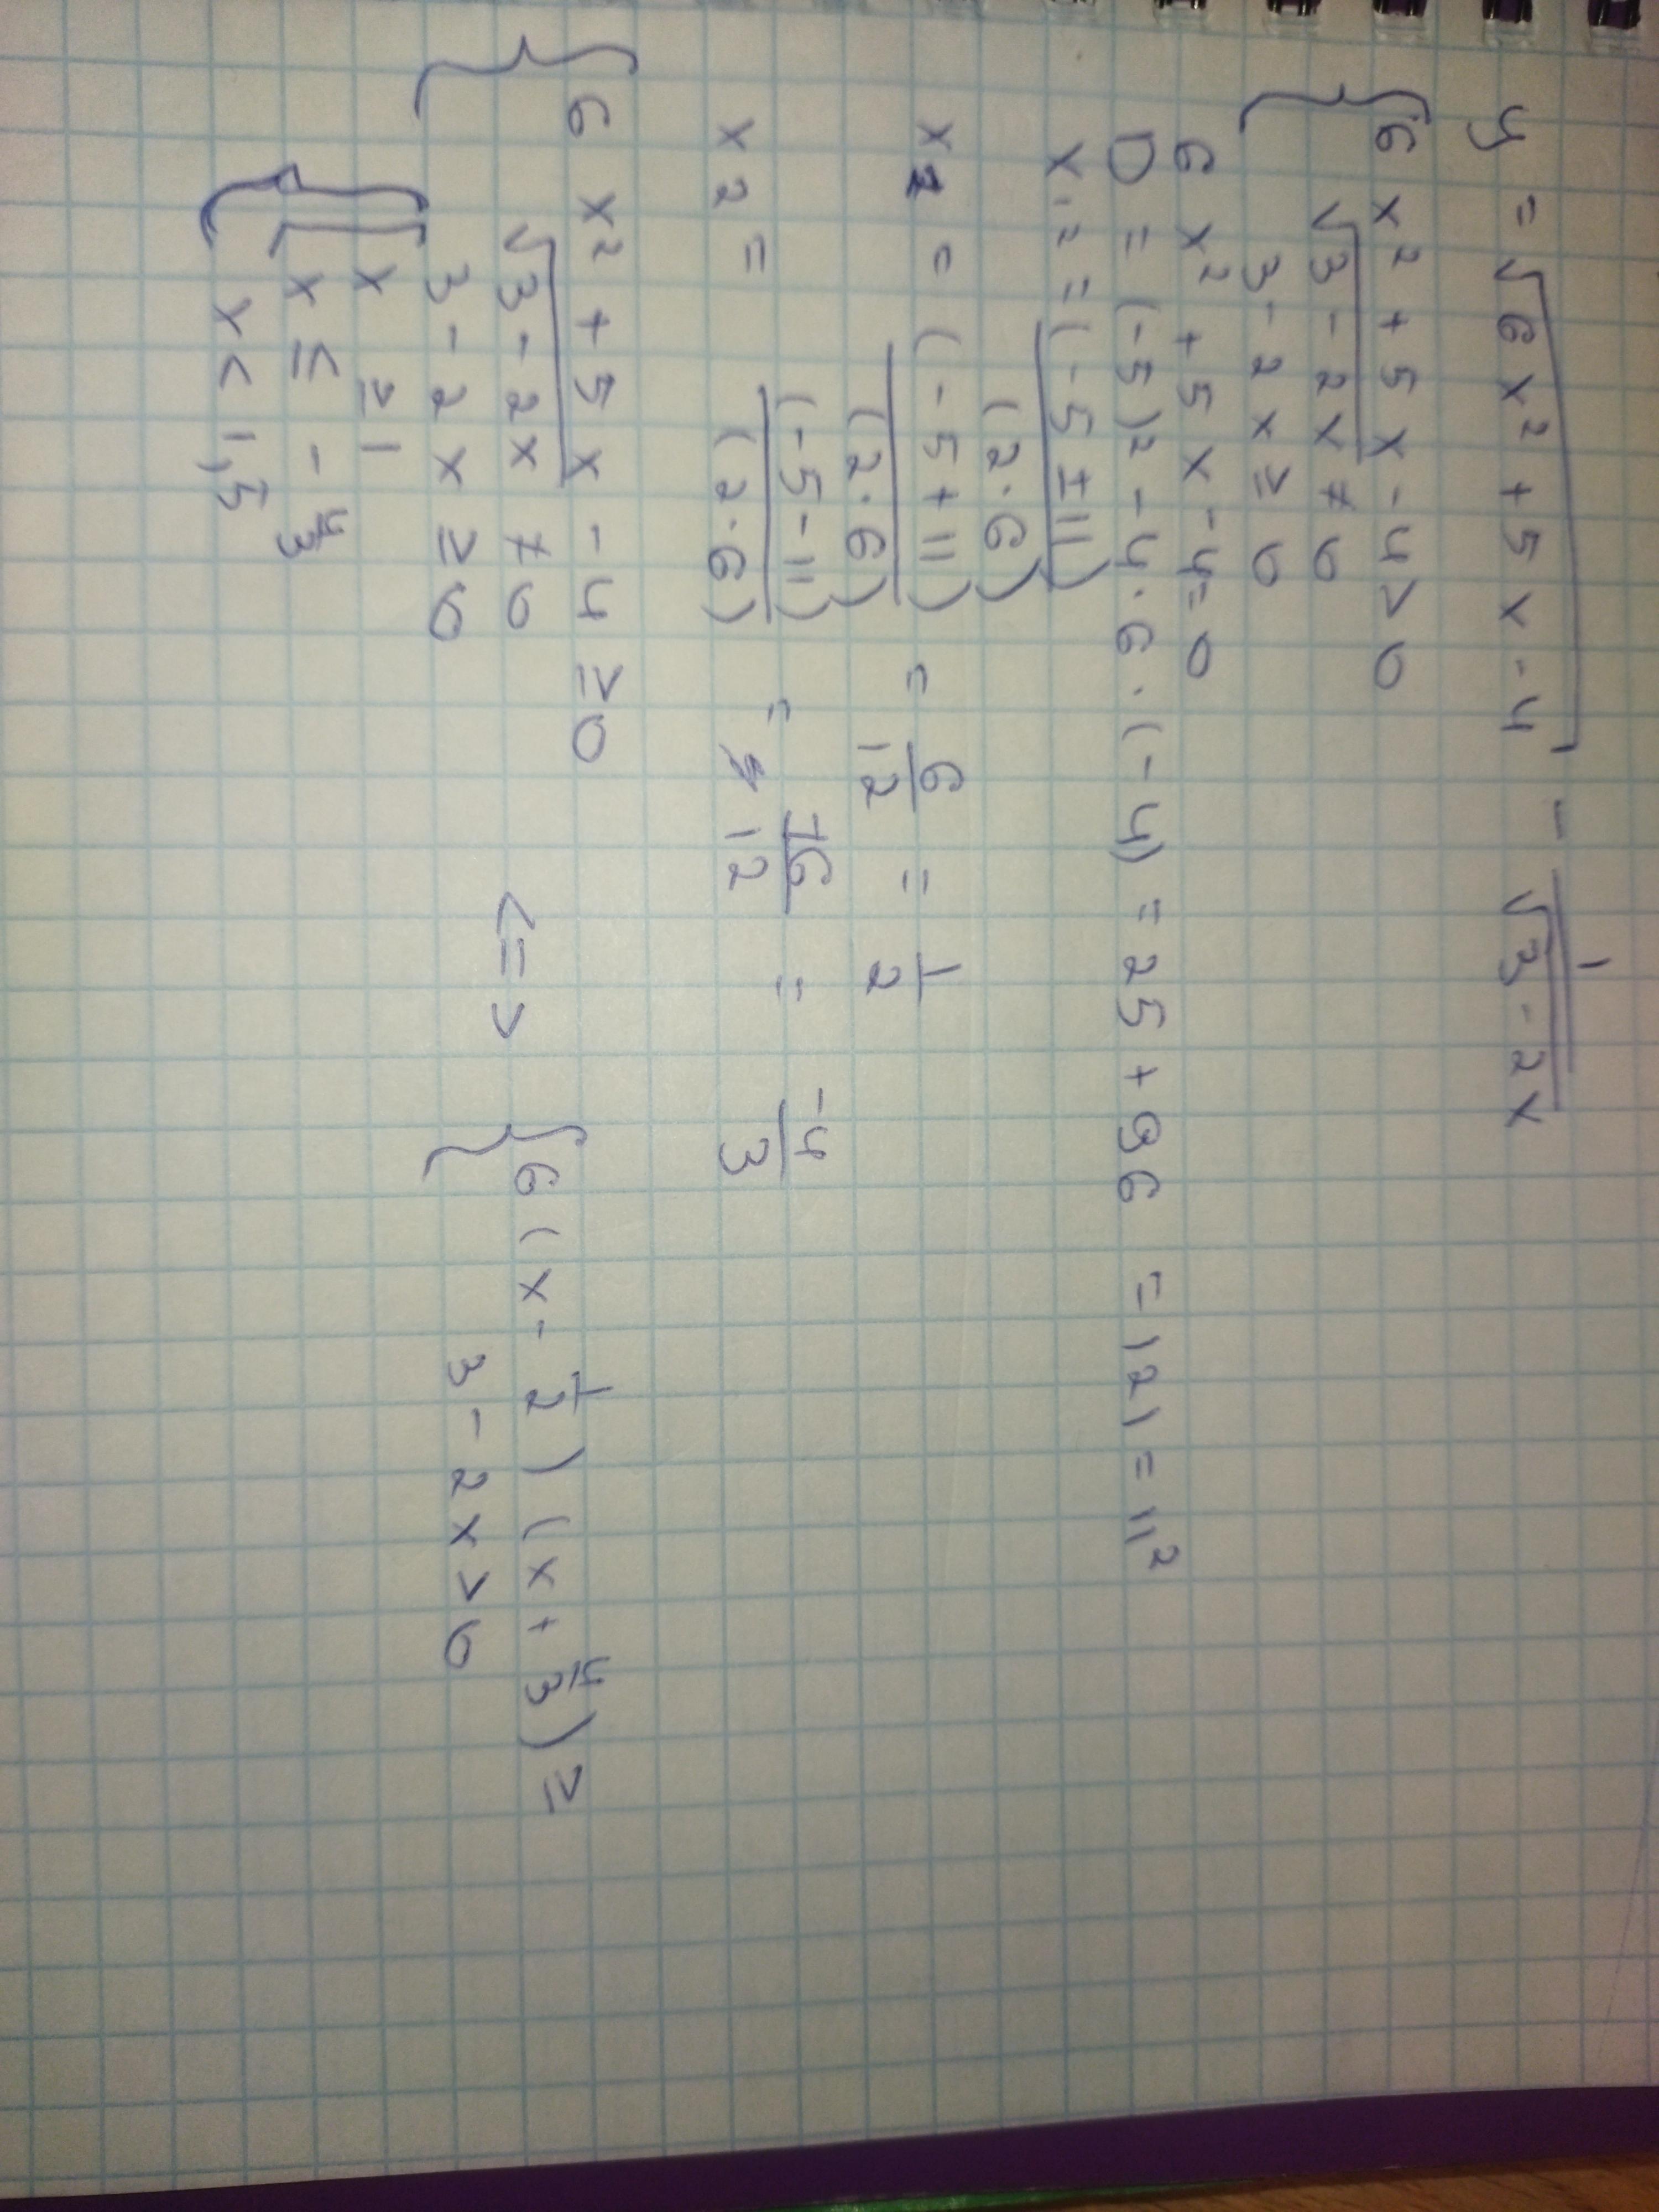 y = √6x² + 5x - 4 - 1/√3 - 2x
{ 6x² + 5x - 4 > 0
√3 - 2x ≠ 0
3 - 2x ≥ 0
6x² + 5x - 4 = 0
D = (-5)² - 4 · 6 · (-4) = 25 + 96 = 121 = 11²
x1,2 = (-5 ± 11)/(2·6)
x = (-5 + 11)/(2·6) = 6/12 = 1/2
x2 = (-5 - 11)/(2·6) = 16/12 = -4/3
{ 6x² + 5x - 4 ≥ 0
√3 - 2x ≠ 0 <=> { 6(x - 1/2)(x + 4/3) ≥
3 - 2x ≥ 0 3 - 2x > 0
{ [ x ≥ 1
x ≤ -4/3
x < 1,5